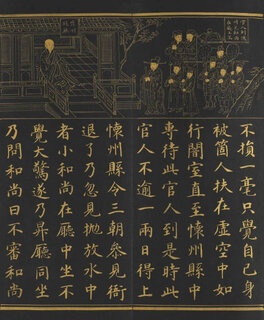 不損一毫只覺自己身
被箇人扶在虛空中如
行闇室直至懷州縣中
專待此官人到是時此
官人不逾一兩日得上
懷州縣令三朝參見衙
退了乃忽見拋放水中
者小和尚在廳中坐不
覺大驚遂乃昇廳同坐
乃問和尚曰不審和尚